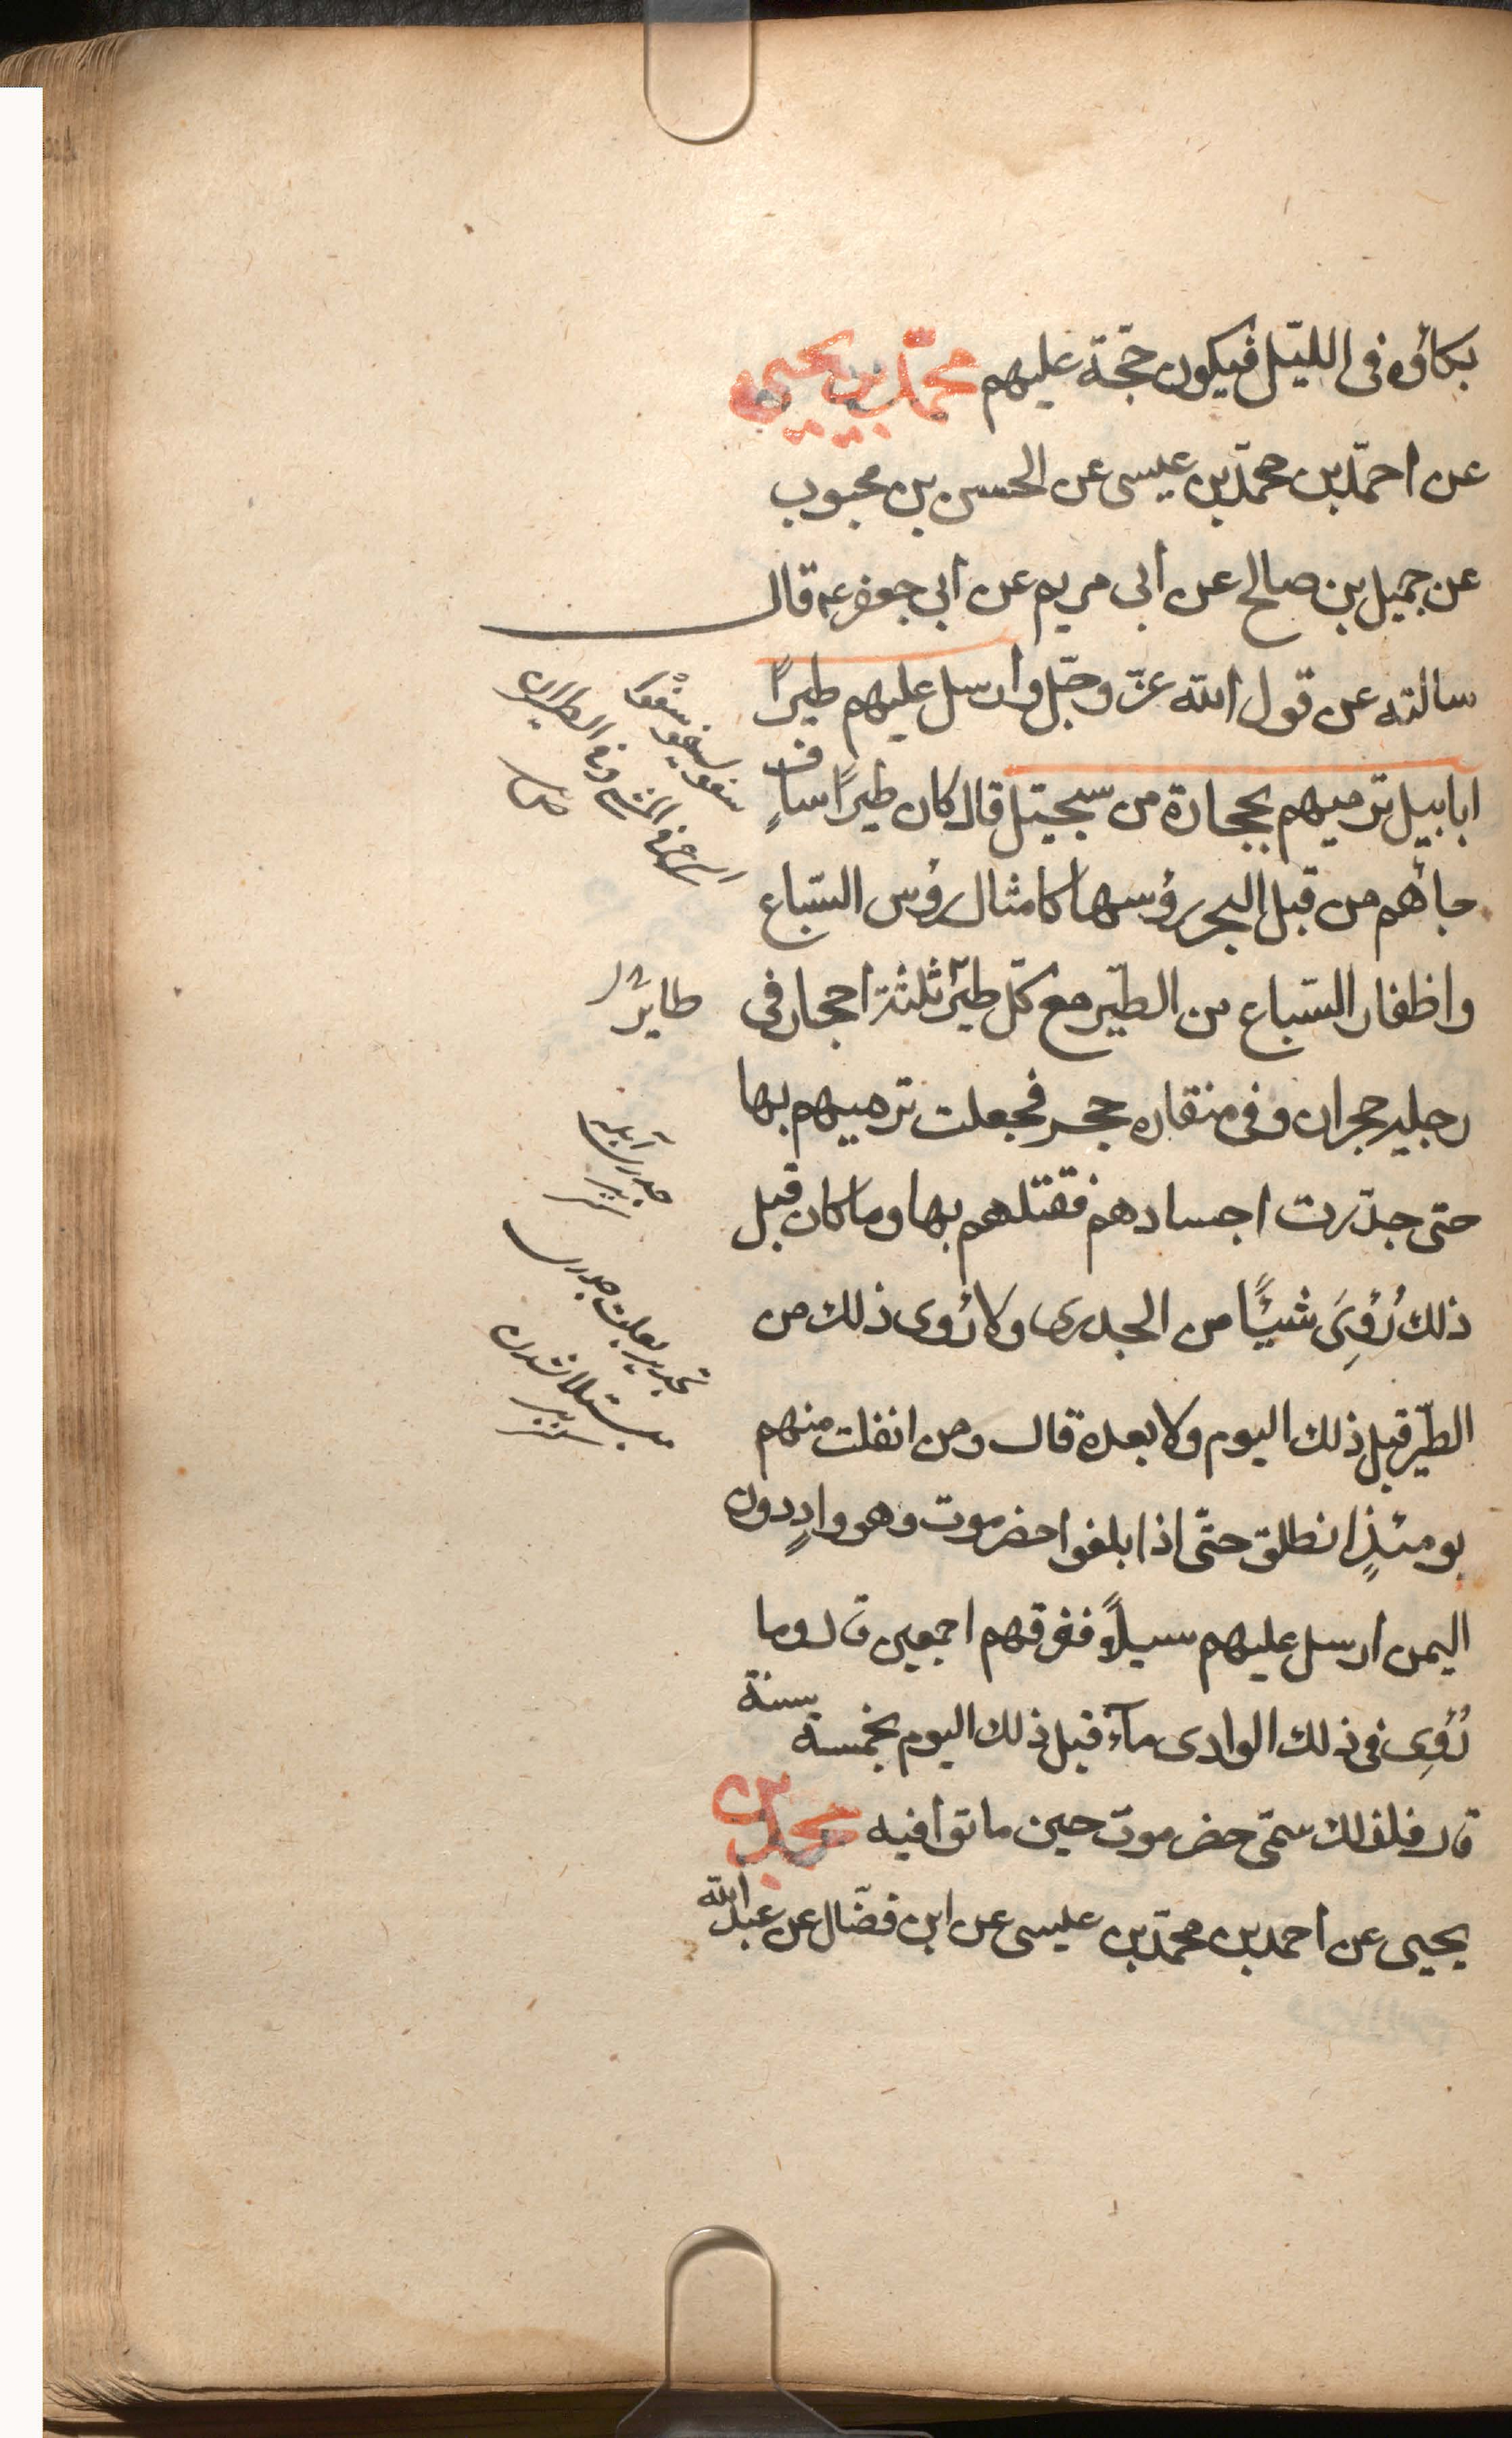 بكاؤه فى الليّل فيكون حجّة عليهم محمّد بن يحيى
عن احمّد بن محمّد بن عيسى عن الحسن بن محبوب
عن جميل بن صالح عن ابى مريم عن ابى جعفر عه قال
سالته عن قول الله عزّ وجّل وارسل عليهم طيراً
ابابيل ترميهم بحجارة من سجيّل قال كان طيراً سافٍ
جاءهم من قبل البحر رؤسها كامثال رؤس السّباع
واظفار السّباع من الطّير مع كلّ طير ثلثة احجار فى
طاير
رجليه حجران وفى منقاره حجر فجعلت ترميهم بها
حتى جدّرت اجسادهم فقتلهم بها وما كان قبل
ذلك رُؤِىَ شيئًا من الجدرى ولا رؤى ذلك من
الطّير قبل ذلك اليوم ولا بعده قال ومن انفلت منهم
يومئذٍ انطلق حتّى اذا بلغوا حضرموت وهو وادٍ دون
اليمن ارسل عليهم سيلاً فغرقهم اجمعين قال وما
رُؤِى فى ذلك الوادى ماء قبل ذلك اليوم بخمسة سنة
قال فلذلك سمّى حضرموت حين ماتوا فيه محمد بن
يحيى عن احمد بن محمّد بن عيسى عن ابن فضّال عن عبد الله
جدرى آبله
تجدير بعلت جدرى
مبتلا شدن